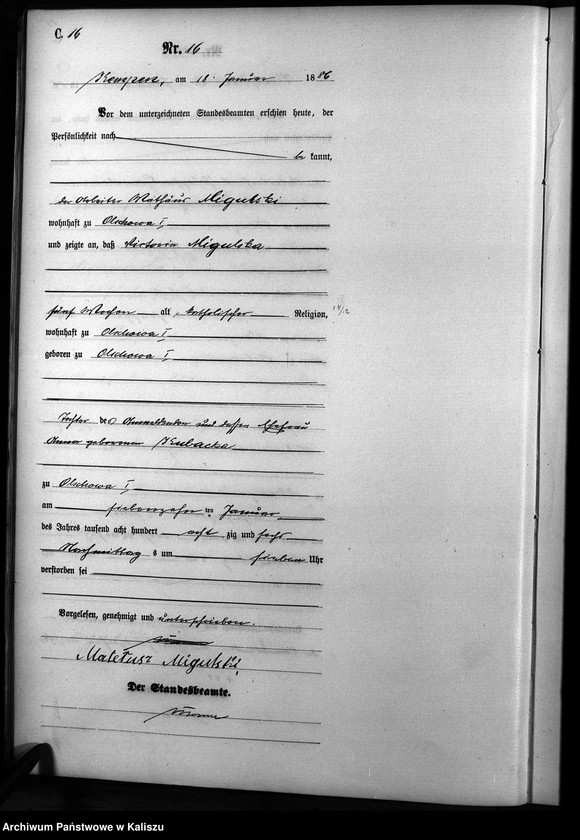 C. 16
Nr. 16
Kempen, am 18. Januar 1886
Vor dem unterzeichneten Standesbeamten erschien heute, der
Persönlichkeit nach
be kannt,
der Arbeiter Mathäus Migulski
wohnhaft zu Olschowa I,
und zeigte an, daß Victoria Migulska
fünf Wochen alt, katholischer Religion, 14/12
wohnhaft zu Olschowa I,
geboren zu Olschowa I,
Tochter des Anmeldenden und dessen Ehefrau
Anna geborenen Kulacka
zu Olschowa I,
am siebenzehn ten Januar
des Jahres tausend acht hundert acht zig und sechs
Nachmittag s um sieben Uhr
verstorben sei
Vorgelesen, genehmigt und unterschrieben.
Mateusz Migulski
Der Standesbeamte.
Archiwum Państwowe w Kaliszu